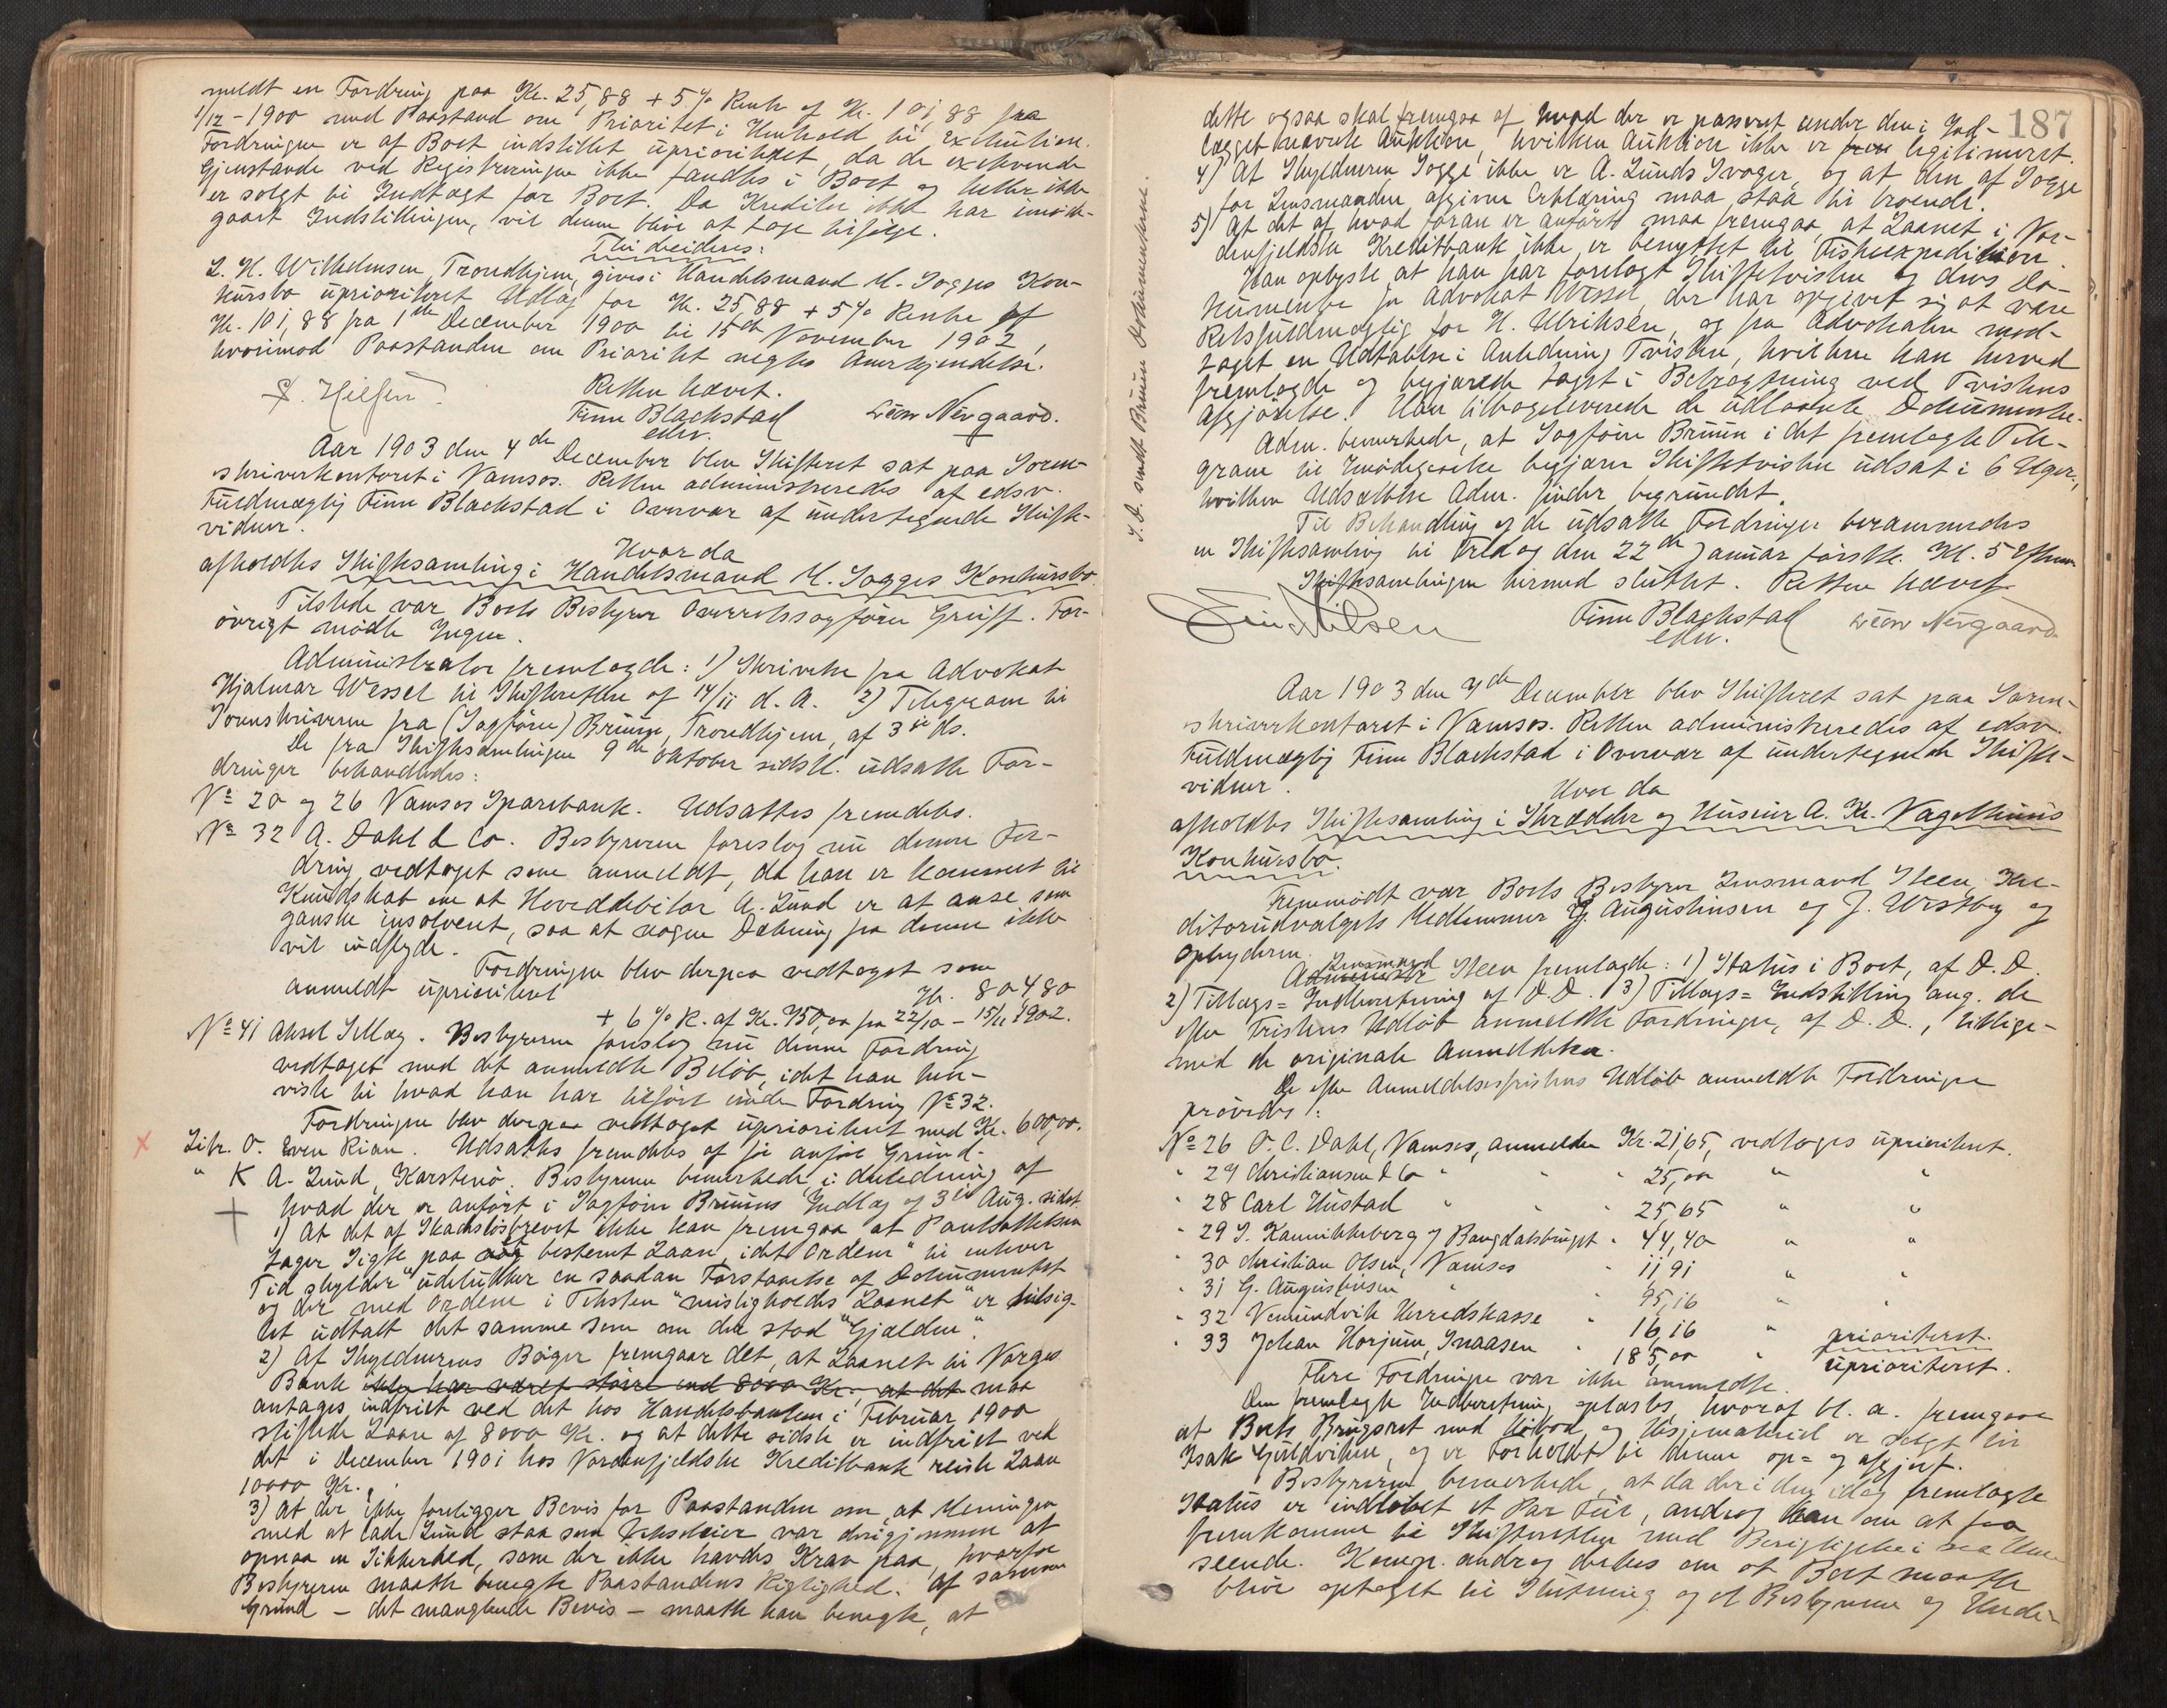 meldt en Fordring paa Kr. 25,88 + 5% Rente af Kr. 101,88 fra
1/12-1900 med Paastand om Prioritet i Henhold til Exekution.
Fordringen er af Boet indstillet uprioritert, da de exekverede
Gjenstande ved Registreringen ikke fandtes i Boet og heller ikke
er solgt til Indtægt for Boet. Da Kreditor ikke har imøde-
gaaet Indstillingen, vil denne blive at tage tilfølge.
Thi decideres:
L. H. Wilhelmsen, Trondhjem, gives i Handelsmand M. Sogges Kon-
kursbo uprioriteret Udlæg for Kr. 25,88 + 5% Rente af
Kr. 101,88 fra 1ste December 1900 til 15de November 1902,
hvorimod Paastanden om Prioritet negtes Anerkjendelse.
Retten hævet.
Finn Blackstad
edsv.
Nergaard.
Aar 1903 den 4de December blev Skifteret sat paa Soren-
skriverkontoret i Namsos. Retten administreredes af edsv.
Fuldmægtig Finn Blackstad i Overvær af undertegnede Skifte-
vidner.
Hvor da
afholdtes Skiftesamling i Handelsmand M. Sogges Konkursbo.
Tilstede var Boets Bestyrer Overretssagfører Greiff. For-
øvrigt mødte Ingen.
Administrator fremlagde: 1) Skrivelse fra Advokat
Hjalmar Wessel til Skifteretten af 14/11 d. A. 2) Telegram til
Sorenskriveren fra (Sagfører) Bruun, Trondhjem, af 3die ds.
De fra Skiftesamlingen 9de Oktober sidstl. udsatte For-
dringer behandledes:
No 20 og 26 Namsos Sparebank. Udsattes fremdeles.
No 32 A. Dahl & Co. Bestyreren foreslog nu denne For-
dring vedtaget som anmeldt, da han er kommet til
Kundskab om at Hoveddebitor A. Lund er at anse som
ganske insolvent, saa at nogen Dækning fra denne ikke
vil indflyde.
Fordringen blev derpaa vedtaget som
anmeldt uprioritert Kr. 804,80
+ 6% R. af Kr. 750,00 fra 22/10 - 15/11 1902.
No 41 Aksel Selläg. Bestyreren foreslog nu denne Fordring
vedtaget med det anmeldte Beløb, idet han hen-
viste til hvad han har tilført under Fordring No 32.
Fordringen blev derpaa vedtaget uprioritert med Kr. 600,00.
Litr. O. Even Rian. Udsattes fremdeles af før anført Grund.
" K A. Lund, Karstenø. Bestyreren bemerkede i Anledning af
hvad der er anført i Sagfører Bruuns Indlæg af 3die Aug. sidst.
1) At det af Skadesløsbrevet ikke kan fremgaa at Pantsættelsen
tager Sigte paa et bestemt Laan, idet Ordene "til enhver
Tid skylder" udelukker en saadan Forstaaelse af Dokumentet
og der med Ordene i Teksten "misligholdes Laanet" er tilsig-
tet udtalt det samme som om der stod "Gjælden".
2) Af Skyldnerens Bøger fremgaar det, at Laanet til Norges
Bank ikke har været større end 8000 Kr., at det maa
antages indfriet ved det hos Handelsbanken i Februar 1900
stiftede Laan af 8000 Kr. og at dette sidste er indfriet ved
det i December 1901 hos Nordenfjeldske Kreditbank reiste Laan
10000 Kr.
3) At der ikke foreligger Bevis for Paastanden om, at Meningen
med at lade Lund staa som Vexeleier var derigjennem at
opnaa en Sikkerhed, som der ikke havdes Krav paa, hvorfor
Bestyreren maatte benegte Paastandens Rigtighed. Af samme
Grund - det manglende Bevis - maatte han benegte, at
187
dette ogsaa skal fremgaa af hvad der er passeret under den i Ind-
lægget nævnte Auktion, hvilken Auktion ikke er legitimeret.
4) At Skyldneren Sogge ikke er A. Lunds Svoger, og at den af Sogge
for Lensmanden afgivne Erklæring maa staa til troende.
5) At det af hvad foran er anført maa fremgaa, at Laanet i Nor-
denfjeldske Kreditbank ikke er benyttet til Fiskeexpedition.
Han oplyste at han har forelagt Skiftetvisten og dens Do-
kumenter for Advokat Wessel, der har opgivet sig at være
Retsfuldmægtig for H. Ulriksen, og fra Advokaten mod-
taget en Udtalelse i Anledning Tvisten, hvilken han herved
fremlagde og begjærede taget i Betragtning ved Tvistens
Afgjørelse. Han tilbageleverede de udlaante Dokumenter.
Adm. bemerkede, at Sagfører Bruun i det fremlagte Tele-
gram til Imødegaaelse begjærer Skiftetvisten udsat i 6 Uger,
hvilken Udsættelse Adm. finder begrundet.
Til Behandling af de udsatte Fordringer berammedes
en Skiftesamling til Fredag den 22de Januar førstk. Kl. 5 Efterm.
Skiftesamlingen hermed sluttet. Retten hævet
Finn Blackstad
edsv.
Nergaard
S. D. sendt Bruun Dokumenterne.
Aar 1903 den 4de December blev Skifteret sat paa Soren-
skriverkontoret i Namsos. Retten administreredes af edsv.
Fuldmægtig Finn Blackstad i Overvær af undertegnede Skifte-
vidner.
Hvor da
afholdtes Skiftesamling i Skrædder og Huseier A. Kr. Vagelhuus
Konkursbo.
Fremmødt var Boets Bestyrer Lensmand Steen, Kre-
ditorudvalgets Medlemmer G. Augustinsen og J. Westby og
Opbyderen.
Lensmand Steen fremlagde: 1) Status i Boet, af D. D.
2) Tillægs-Indberetning af D. D. 3) Tillægs-Indstilling ang. de
efter Fristens Udløb anmeldte Fordringer, af D. D., tillige-
med de originale Anmeldelser.
De efter Anmeldelsesfristens Udløb anmeldte Fordringer
prøvedes:
No 26 O. C. Dahl, Namsos, anmelder Kr. 21,65, vedtoges uprioritert.
" 27 Christiansen & Co " " " 25,00 " "
" 28 Carl Hustad " " " 25,65 " "
" 29 S. Kannikkeberg og Bangdalsbruget " 44,40 " "
" 30 Christian Olsen, Namsos " 11,91 " "
" 31 G. Augustinsen " " 95,16 " "
" 32 Vemundvik Herredskasse " 16,16 " prioritert.
" 33 Johan Horjum, Snaasen " 185,00 " uprioritert.
Flere Fordringer var ikke anmeldte.
Den fremlagte Indberetning oplæstes, hvoraf bl. a. fremgaar
at Boets Brugsret med og Husjemateriel er solgt til
Isak Gultvikn, og er Forholdet til denne op- og afgjort.
Bestyreren bemerkede, at da der i den idag fremlagte
Status er indløbet et Par Feil, androg han om at faa
fremkomme til Skifteretten med Berigtigelse i saa Hen-
seende. Komp. androg derhos om at Boet maatte
blive optaget til Slutning og at Bestyreren og Under-